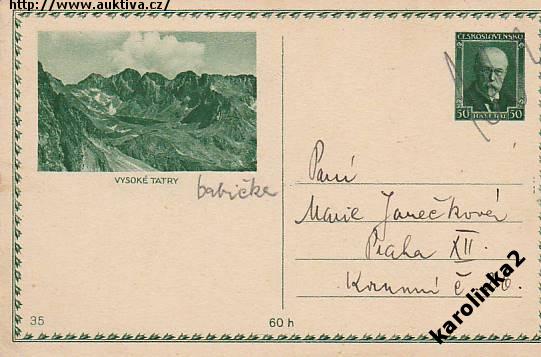 http://www.auktiva.cz/
ČESKOSLOVENSKO
50 HALÉŘŮ 50
VYSOKÉ TATRY
babička
Paní
Marie Janečková
Praha XII.
Korunní č
35
60 h
karolinka2